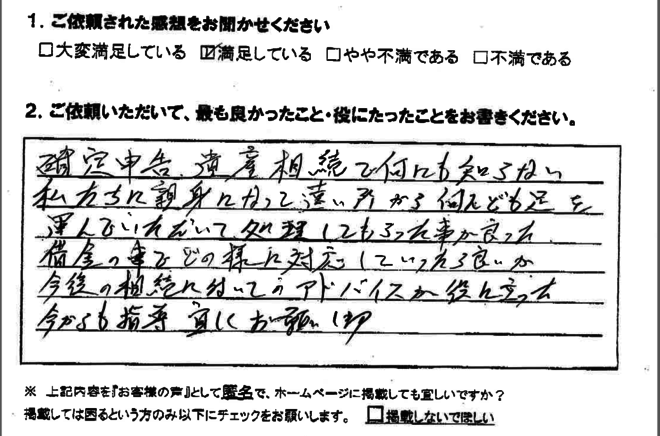 1. ご依頼された感想をお聞かせください
□大変満足している ☑満足している □やや不満である □不満である
2. ご依頼いただいて、最も良かったこと・役にたったことをお書きください。
確定申告、遺産相続で何にも知らない
私たちに親身になって遠い所から何んども足を
運んでいただいて処理してもらった事が良った
借金の事でどの様に対応していったら良いか
今後の相続に付いてのアドバイスが役に立った
今からも指導宜しくお願いします
※ 上記内容を『お客様の声』として匿名で、ホームページに掲載しても宜しいですか?
掲載しては困るという方のみ以下にチェックをお願いします。 □掲載しないでほしい